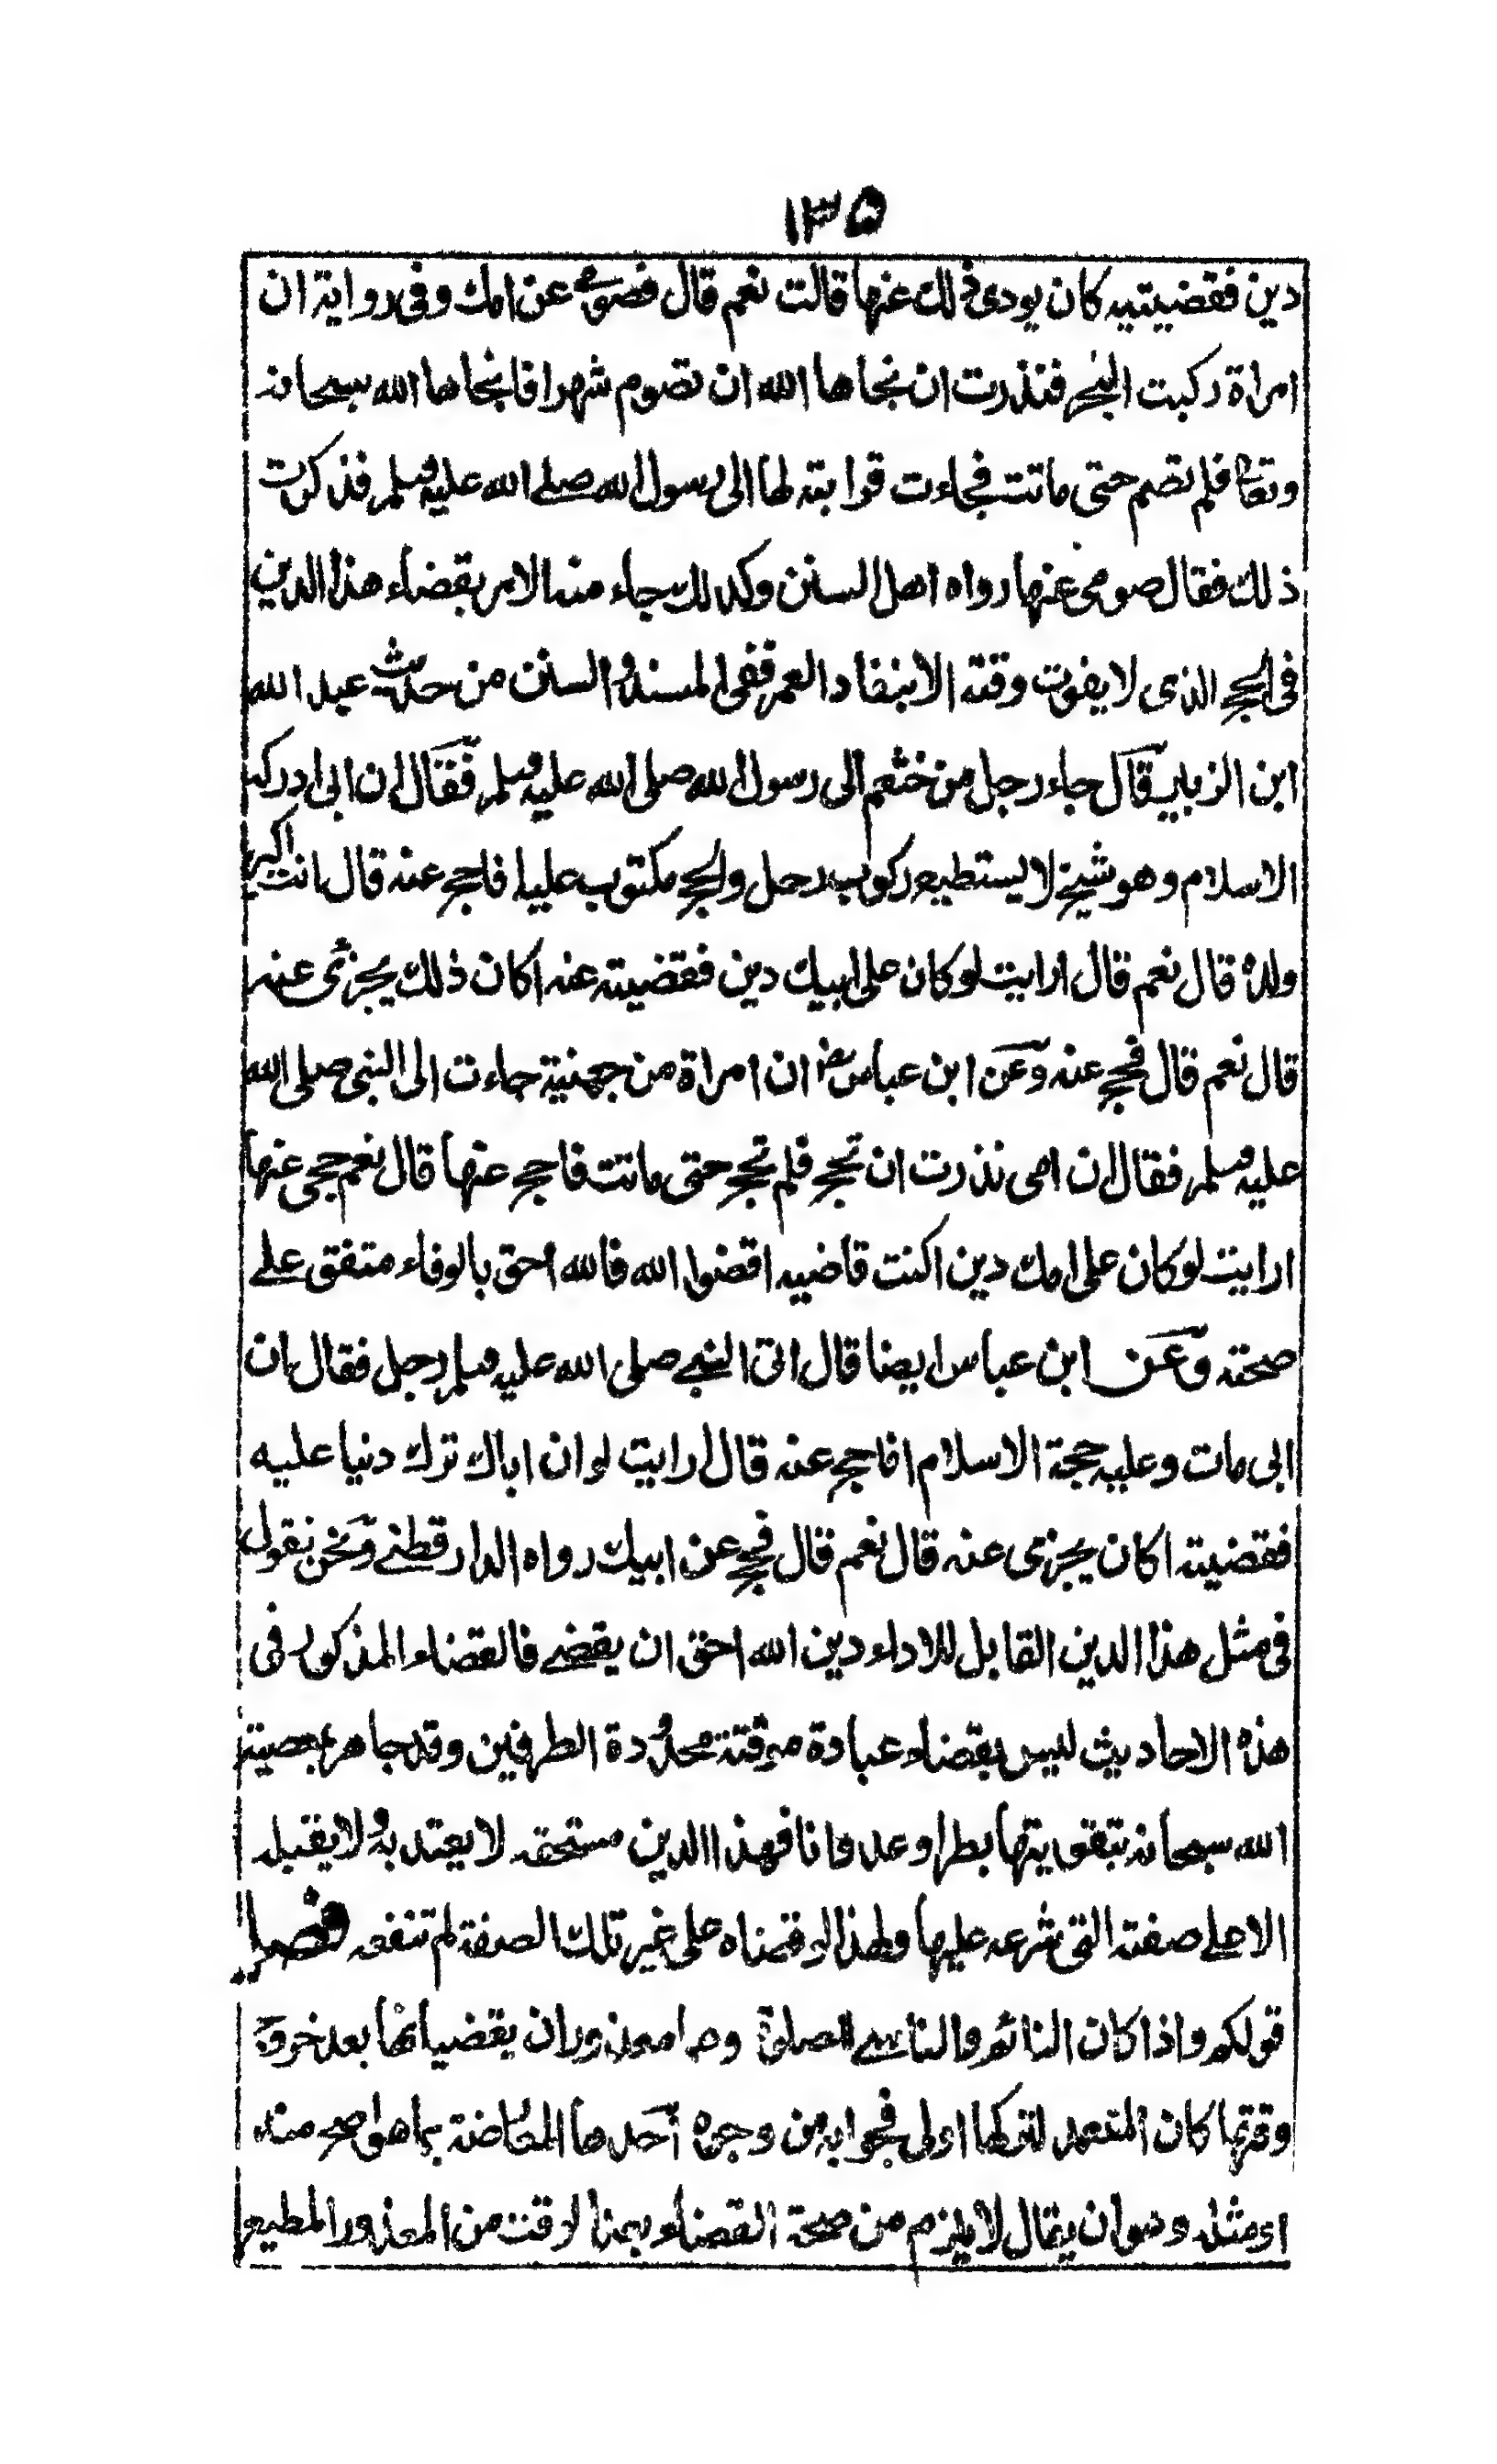 ١٣٥
دين فقضيتيه كان يودى ذلك عنها قالت نعم قال فصومى عن امك وفى رواية ان
امراة ركبت البحر فنذرت ان نجاها الله ان تصوم شهرا فانجاها الله سبحانه
وتعالى فلم تصم حتى ماتت فجاءت قرابته لها الى رسول الله صلے الله عليه وسلم فذكرت
ذلك فقال صومى عنها رواه اهل السنن وكذلك جاء منه الامر بقضاء هذا الدين
فى الحج الذى لا يفوت وقته الا بنفاد العمر ففى المسند والسنن من حديث عبد الله
ابن الزبير قال جاء رجل من خثعم الى رسول الله صلى الله عليه وسلم فقال ان ابى ادركه
الاسلام وهو شيخ لا يستطيع ركوب رحل والحج مكتوب عليه افاحج عنه قال انت اكبر
ولده قال نعم قال ارايت لو كان على ابيك دين فقضيته عنه اكان ذلك يجزئ عنه
قال نعم قال فحج عنه وعن ابن عباس رض ان امراة من جهنية جاءت الى النبى صلى الله
عليه وسلم فقال ان امى نذرت ان تحج فلم تحج حتى ماتت فاحج عنها قال نعم حجى عنها
ارايت لو كان على امك دين اكنت قاضيه اقضوا الله فالله احق بالوفاء متفق علے
صحته وعن ابن عباس ايضا قال اتى النبے صلى الله عليه وسلم رجل فقال ان
ابى مات وعليه حجة الاسلام افاحج عنه قال ارايت لو ان اباك ترك دنيا عليه
فقضيته اكان يجزى عنه قال نعم قال فحج عن ابيك رواه الدارقطنے ونحن نقول
فى مثل هذا الدين القابل للاداء دين الله احق ان يقضے فالقضاء المذكور فى
هذه الاحاديث ليس بقضاء عبادة موقتة محدودة الطرفين وقد جاهر بمعصية
الله سبحانه بتفويتها بطرا وعدوانا فهذا الدين مستحقه لا يعتد به ولا يقبله
الا على صفته التى شرعه عليها ولهذا لو قضاه على غير تلك الصفة لم تنفعه فصل
قولكم واذا كان النائم والناسے للصلوة وهما معذوران يقضيانها بعد خروج
وقتها كان المتعمد لتركها اولى فجوابه من وجوه احدها المعارضة بما هو اصح منه
او مثله وهو ان يقال لا يلزم من صحة القضاء بعد الوقت من المعذور المطيع